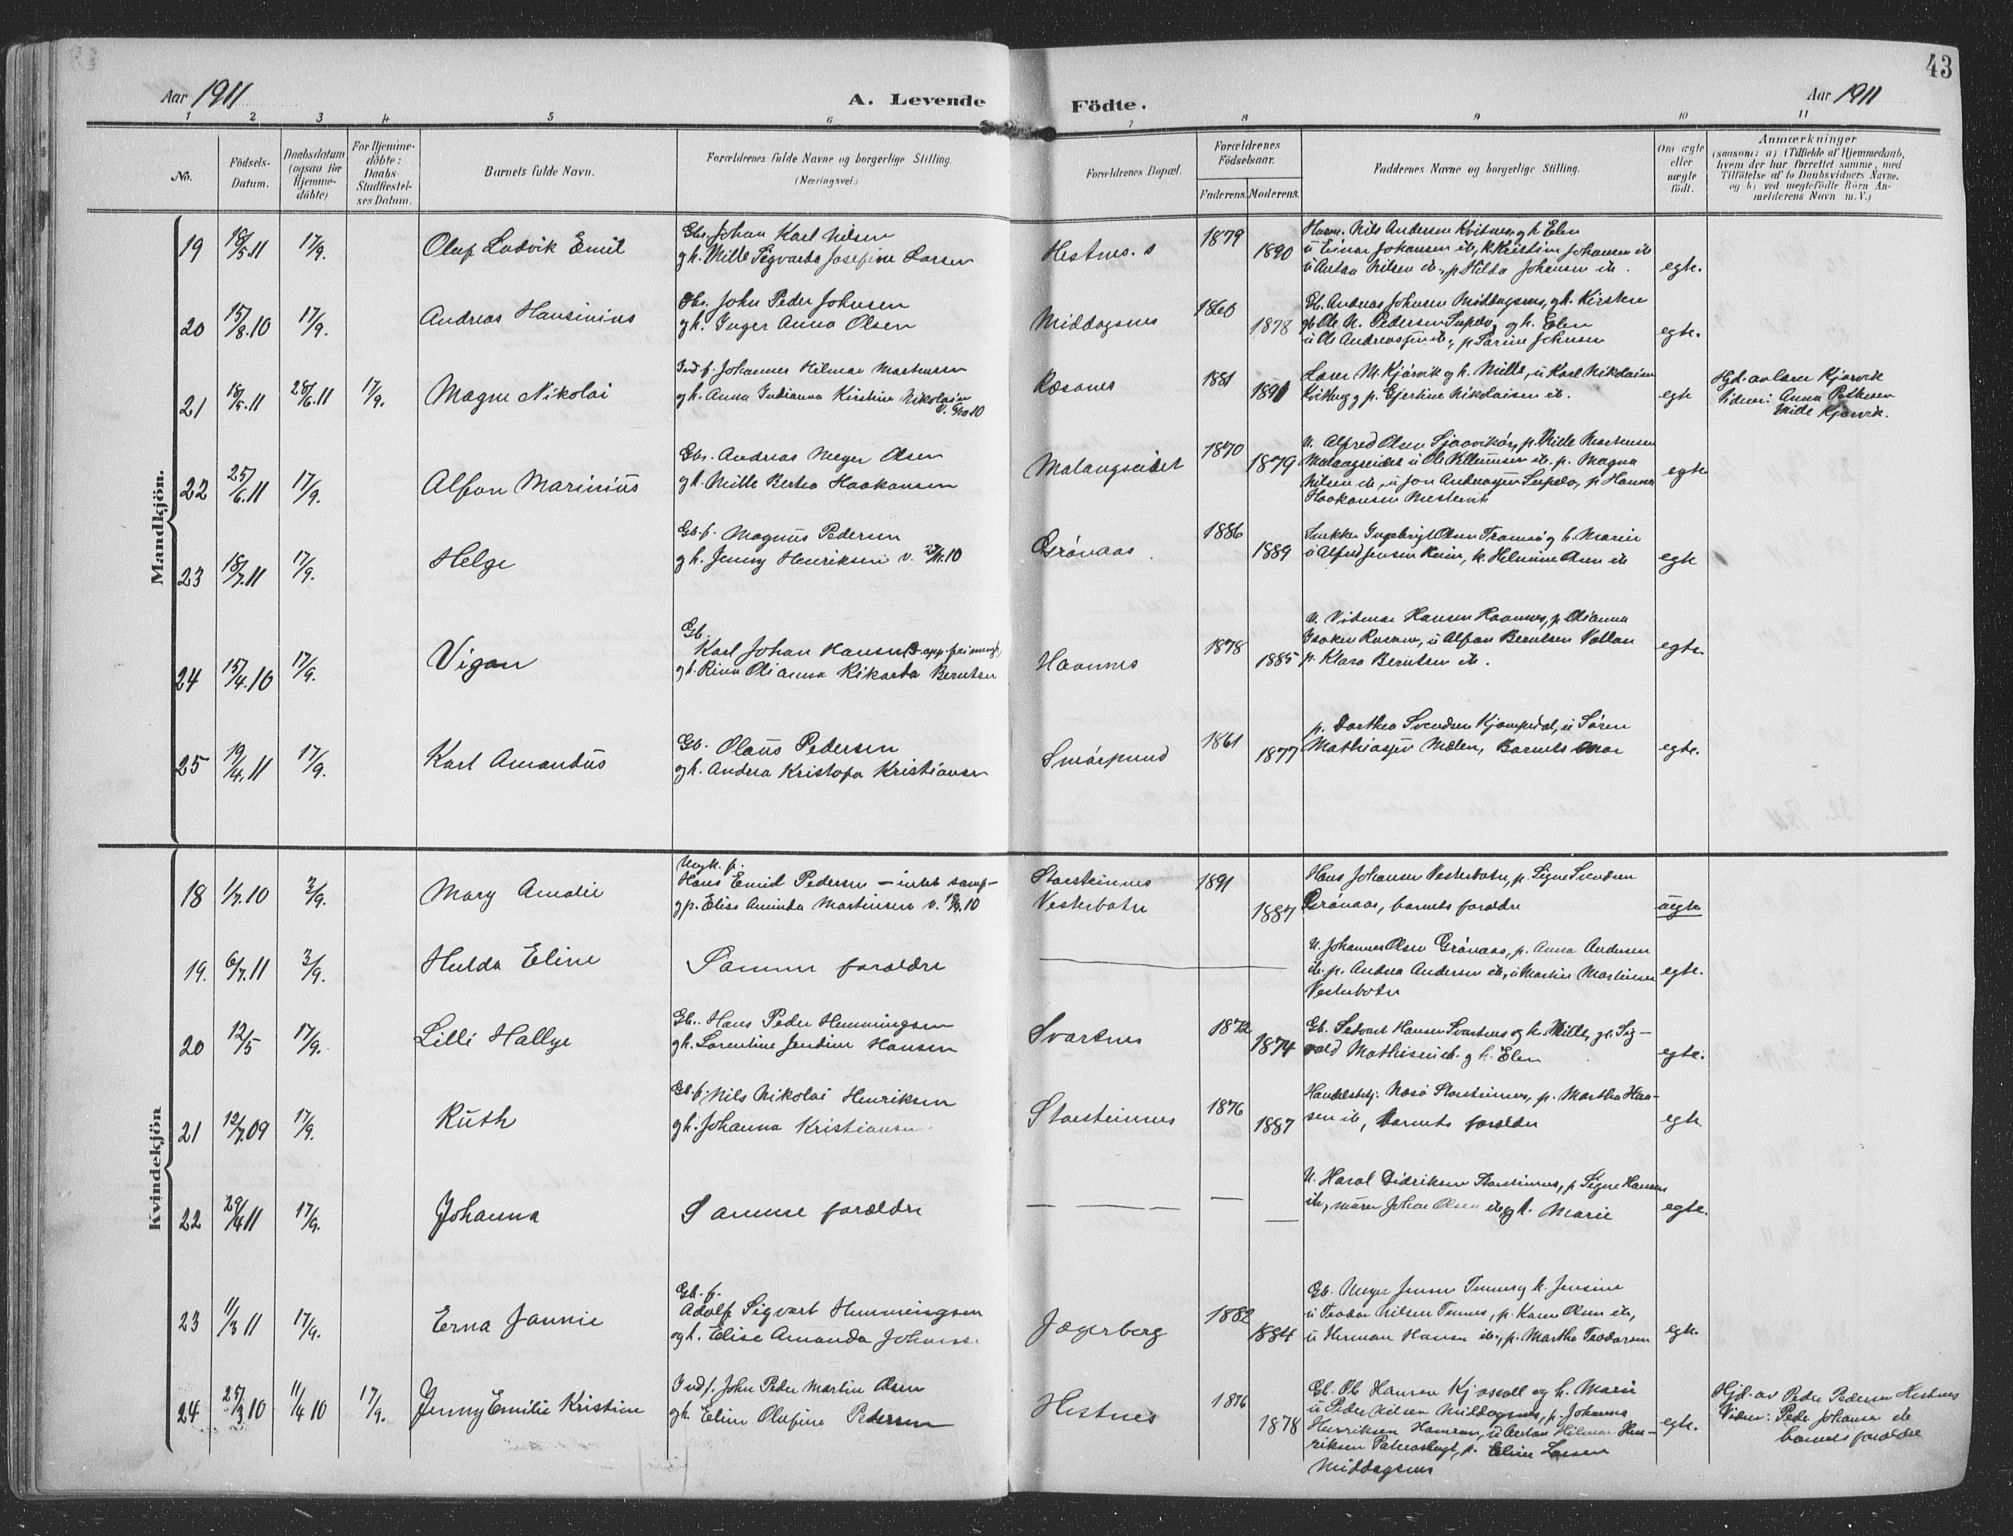 43
Aar 1911
A. Levende Födte.
Aar 1911
1 2 3 4 5 6 7 8 9 10 11
No.
Födsels-
Datum.
Daabsdatum
(ogsaa for
Hjemme-
döbte)
For Hjemme-
döbte:
Daabs-
Stadfæstel-
ses Datum.
Barnets fulde Navn.
Forældrenes fulde Navne og borgerlige Stilling.
(Næringsvei.)
Forældrenes Bopæl.
Forældrenes
Födselsaar.
Faderens. Moderens.
Faddernes Navne og borgerlige Stilling.
Om ægte
eller
uægte
født.
Anmærkninger
(saasom: a) i Tilfælde af Hjemmedaab,
hvem der har forrettet samme, med
Tilföielse af to Daabsvidners Navne,
og b) ved uægtefödte Börn An-
melderens Navn m. V.)
Mandkjön.
19 18/5.11 17/9. Oluf Ludvik Emil
Gbr. Johan Karl Nilsen
gh. Mille Sigvarda Josefine Larsen
Hestnes. 1879 1890
Nils Andersen Kvitnes, gh Elen
u Einar Johansen ib, Kristine Johansen ib
u Anton Nilsen ib., p Hilda Johansen ib.
egte.
20 15/8.10 17/9. Andreas Hansinius
Gbr. John Peder Johnsen
gh. Inger Anna Olsen
Middagsnes 1860 1878
Gb. Andreas Johnsen Middagsnes, gh. Kirsten
gb Ole N. Pedersen gh. Elen
u Ole Andreassen ib., p Sarine Johnsen
egte.
21 18/5.11 28/6.11 17/9. Magne Nikolai
Ind. f. Johannes Hilmar Martensen
gh. Anna Indianna Kirstine Nikolaisen
Ræsanes 1881 1891
Lærer M. Kjörvik gh. Mille, u Karl Nikolaisen
Kvitberg p Ejertine Nikolaisen ib.
egte
Hjd. av lærer Kjörvik
Vidner: Anna Pettersen
Mille Kjørvik.
22 25/6.11 17/9. Alfon Marinius
Gbr. Andreas Meyer Olsen
gh. Mille Berta Haakonsen
Malangseidet 1870 1879
U. Alfred Olsen p. Mille Martensen
Malangseidet u Ole Klemmsen ib. p. Magna
Nilsen ib, u Jon Andreassen p Hanna
Haakonsen Mestervik
egte
23 18/7.11 17/9. Helge
Gb. f. Magnus Pedersen
gh. Jenny Henriksen v. 27/11.10
Grönaas. 1886 1889
Ingebrigt Olsen Tromsö gh. Marie
u Alfred Jensen Heim, p. Helmine Olsen ib
egte
24 15/4.10 17/9. Vigan
Gb.
Karl Johan Hansen
gh. Rina Olianna Rikarda Berntsen
Havnnes 1878 1885
U. Vidmar Hansen Havnnes, p. Olianna
Isaksen u Alfon Berntsen Vollan
p. Klara Berntsen ib.
egte
25 19/4.11 17/9. Karl Amandus
Gb. Olaus Pedersen
gh. Andrea Kristofa Kristiansen
Smörpund 1861 1877
p. Dorthea Svendsen u Sören
Mathiassen Mælen, Barnets Mor
egte.
Kvindekjön
18 1/7.10 3/9. Mary Amalie
Ungk. f.
Hans Emid Pedersen
gp. Elise Aminda Martinsen
Storsteinnes
Vesterbotn
1891 1887
Hans Johansen Vesterbotn, p. Signe Svendsen
Grönaas, barnets forældre
uegte
19. 6/7.11 3/9. Hulda Eline
Samme forældre
U. Johannes Olsen Grönaas, p. Anna Andersen
ib. p. Andrea Andersen ib, u Martin Martinsen
Vesterbotn
egte.
20 12/5 17/9. Lilli Hallye
Gb. Hans Peder Hemmingsen
gh. Lorentine Jendine Hansen
Svartnes 1872 1874
Gb. Sedvart Hansen Svartnes og h. Mille, gb. Sig-
vald Mathisen ib. gh. Elen
egte.
21 12/7.09 17/9. Ruth
Gb. f. Nils Nikolai Henriksen
gh. Johanna Kristiansen
Storsteinnes 1876 1887
Handelsbtj. Næsö Storsteinnes, p. Martha Han-
sen ib, barnets forældre
egte.
22 29/4.11 17/9. Johanna
Samme forældre
U. Harol Didriksen Storsteinnes, p Signe Hansen
ib, murer Johan Olsen ib, gh. Marie
egte.
23 11/3 11 17/9. Erna Jannie
Gb. f.
Adolf Sigvart Hemmingsen
og h. Elise Amanda Johansen
Jægerberg 1882 1884
Gb. Meyer Jensen Tennes gh. Jensine
u Teodor Nilsen Tennes, p. Karen Olsen ib,
u Herman Hansen ib., p. Martha Teodorsen
egte.
24 25/3 10 11/4 10 17/9. Jenny Emilie Kristine
Ind f. John Peder Martin Olsen
gh. Eline Olufine Pedersen
Hestnes 1876 1878
Gb. Ole Hansen Kjosvoll og h. Marie
u Peder Nilsen Middagsnes, p. Johanna
Henriksen u Anton Hilmar Hen-
riksen p. Eline Larsen
Middagsnes
egte.
Hjd. av Peder Pedersen Hestnes
Vidner: Peder Johansen ib
barnets forældre